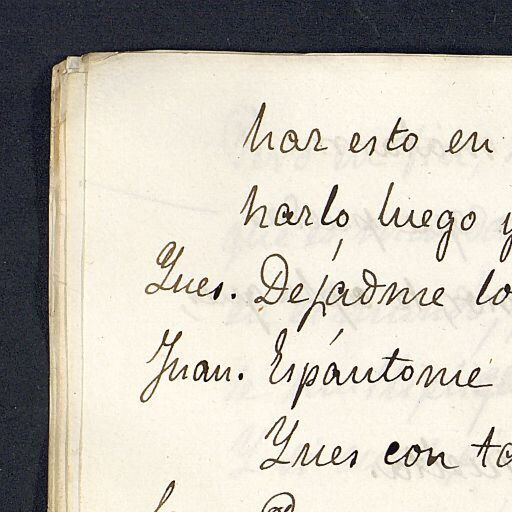 har esto en
harlo luego y
Ynes. Dejádme lo
Juan. Espántome
Ynes con ta